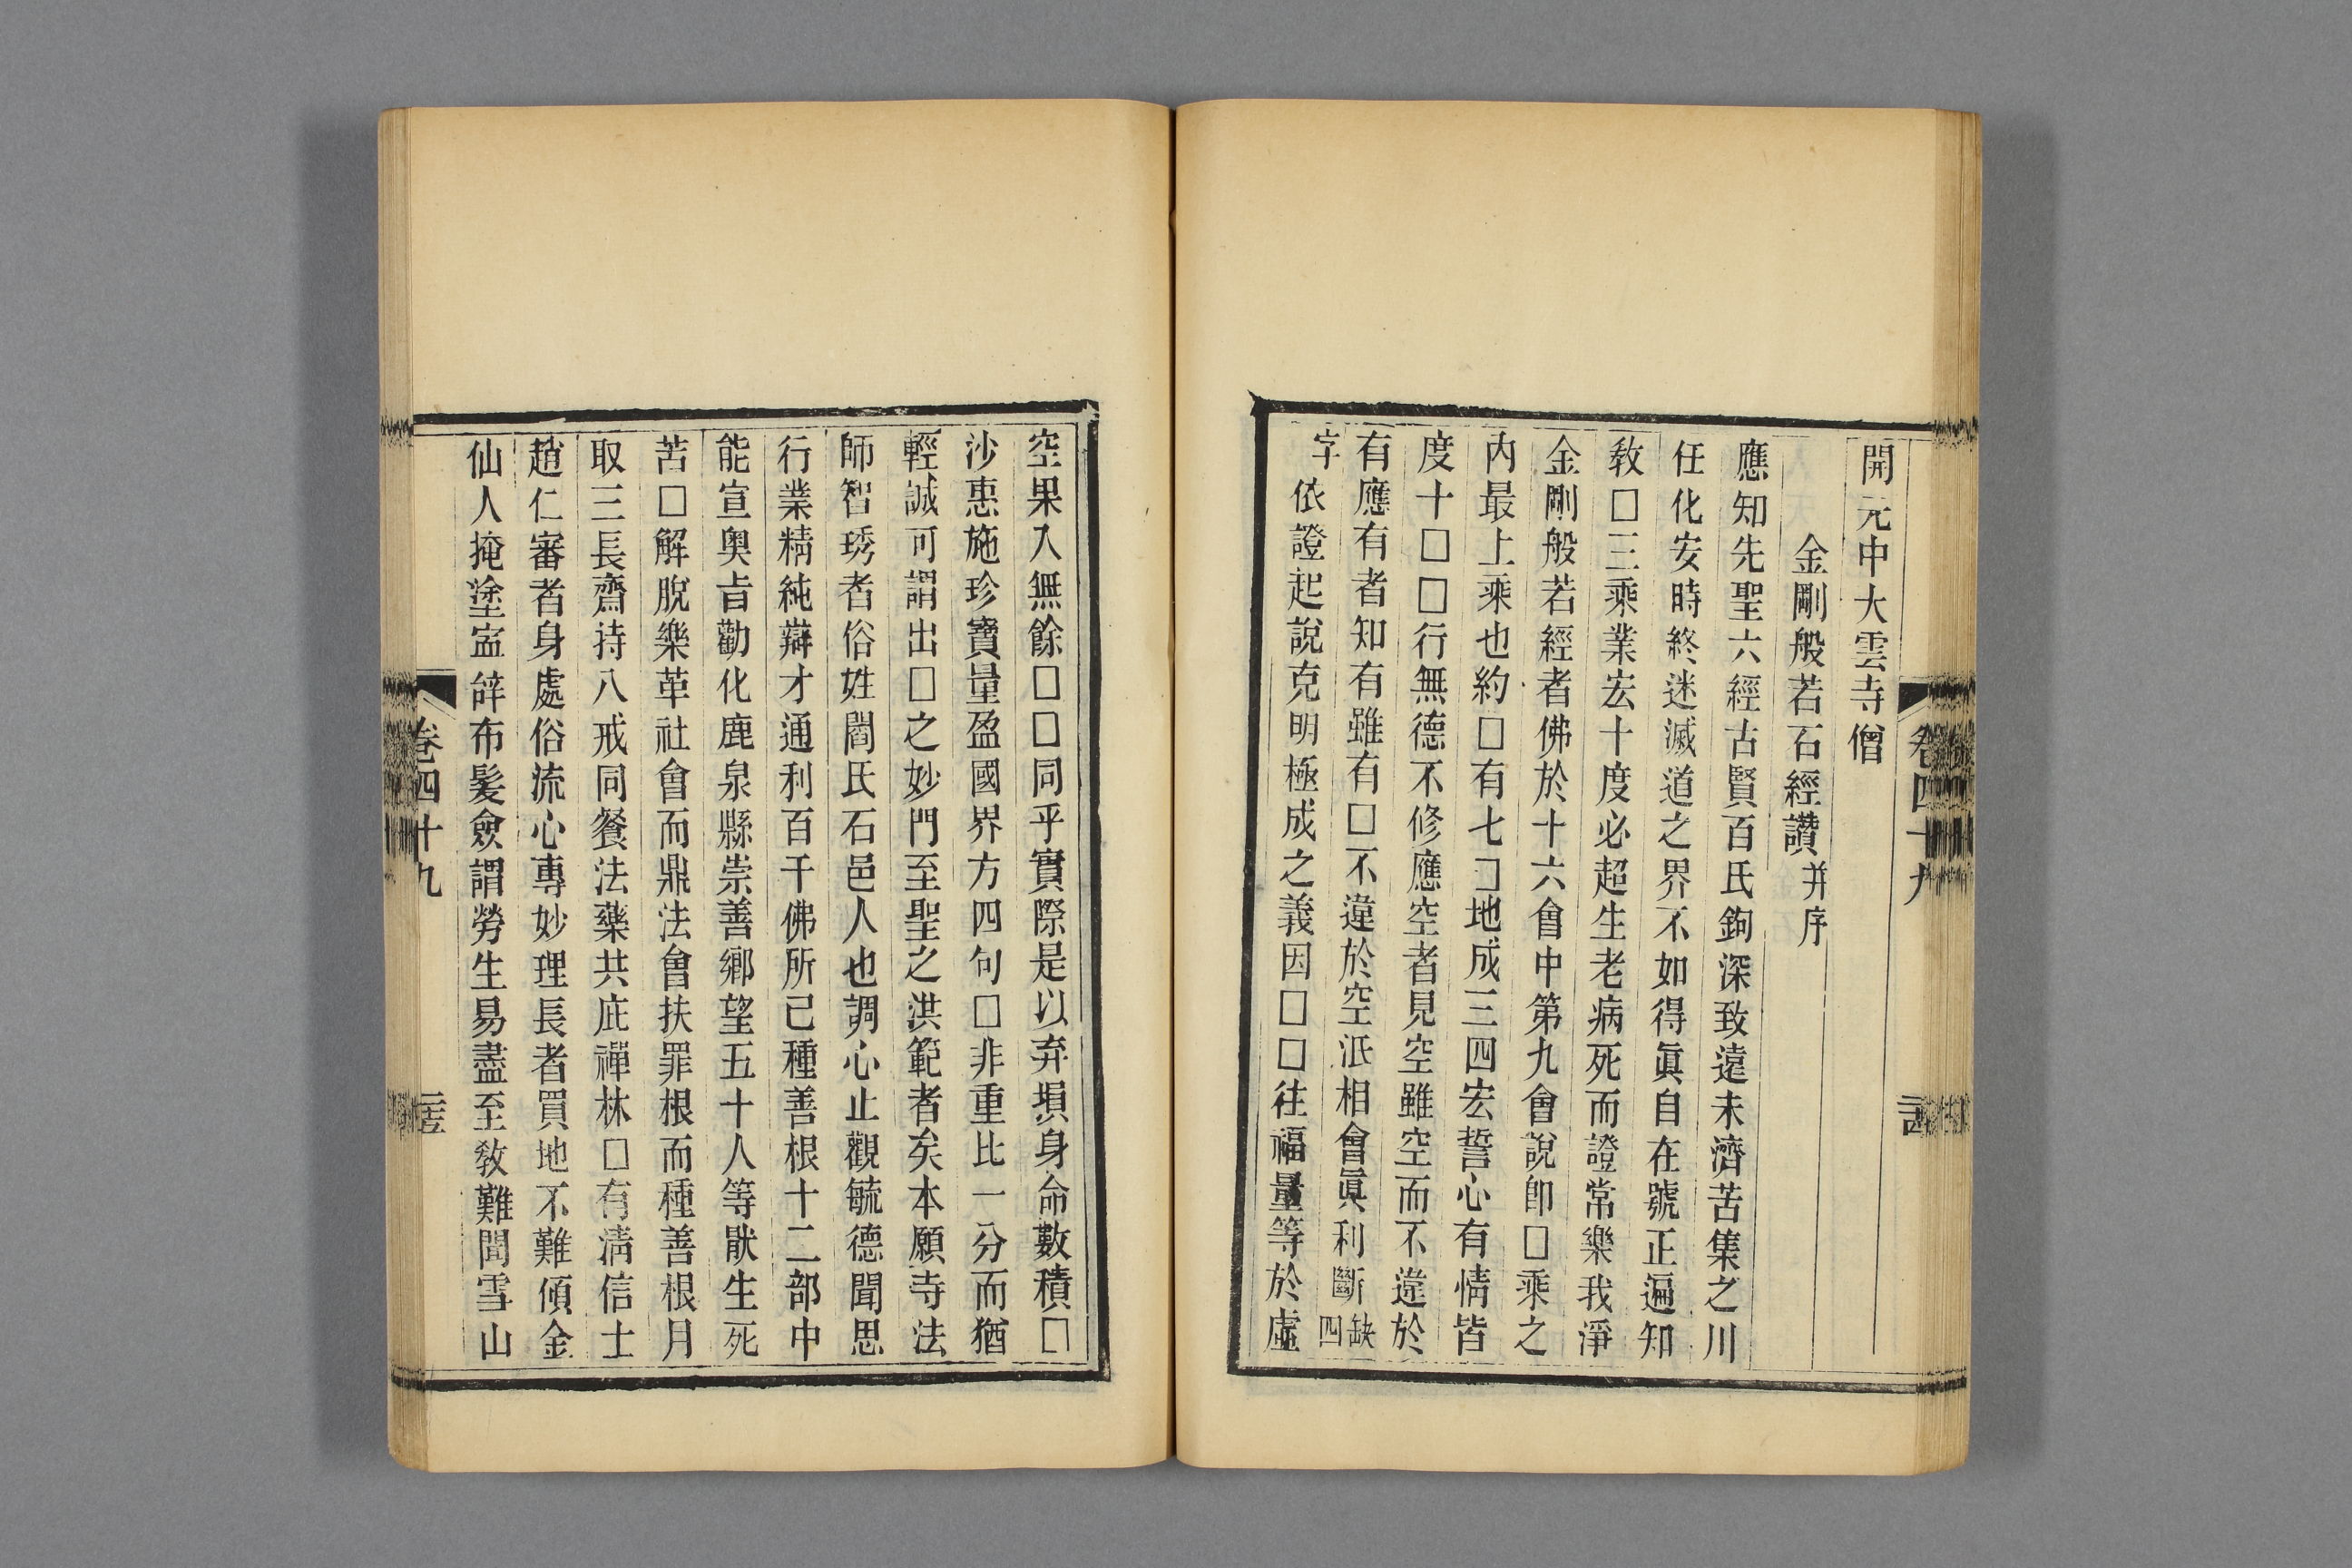 卷四十九
開元中大雲寺僧
金剛般若石經讚并序
應知先聖六經古賢百氏鉤深致遠未濟苦集之川
任化安時終迷滅道之界不如得眞自在號正遍知
敎□三乘業宏十度必超生老病死而證常樂我淨
金剛般若經者佛於十六會中第九會說卽□乘之
內最上乘也約□有七□地成三四宏誓心有情皆
度十□□行無德不修應空者見空雖空而不違於
有應有者知有雖有□不違於空泯相會眞利斷缺四
字依證起說克明極成之義因□□往福量等於虛
空果入無餘□□同乎實際是以弃塤身命數積□
沙惠施珍寶量盈國界方四句□非重比一分而猶
輕誠可謂出□之妙門至聖之洪範者矣本願寺法
師智琇者俗姓閻氏石邑人也調心止觀毓德聞思
行業精純辯才通利百千佛所已種善根十二部中
能宣奧旨勸化鹿泉縣崇善鄉望五十人等猒生死
苦□解脫樂革社會而鼎法會扶罪根而種善根月
取三長齋持八戒同餐法藥共庇禪林□有淸信士
趙仁審者身處俗流心專妙理長者買地不難傾金
仙人掩塗寍辝布髮僉謂勞生易盡至敎難聞雪山
卷四十九